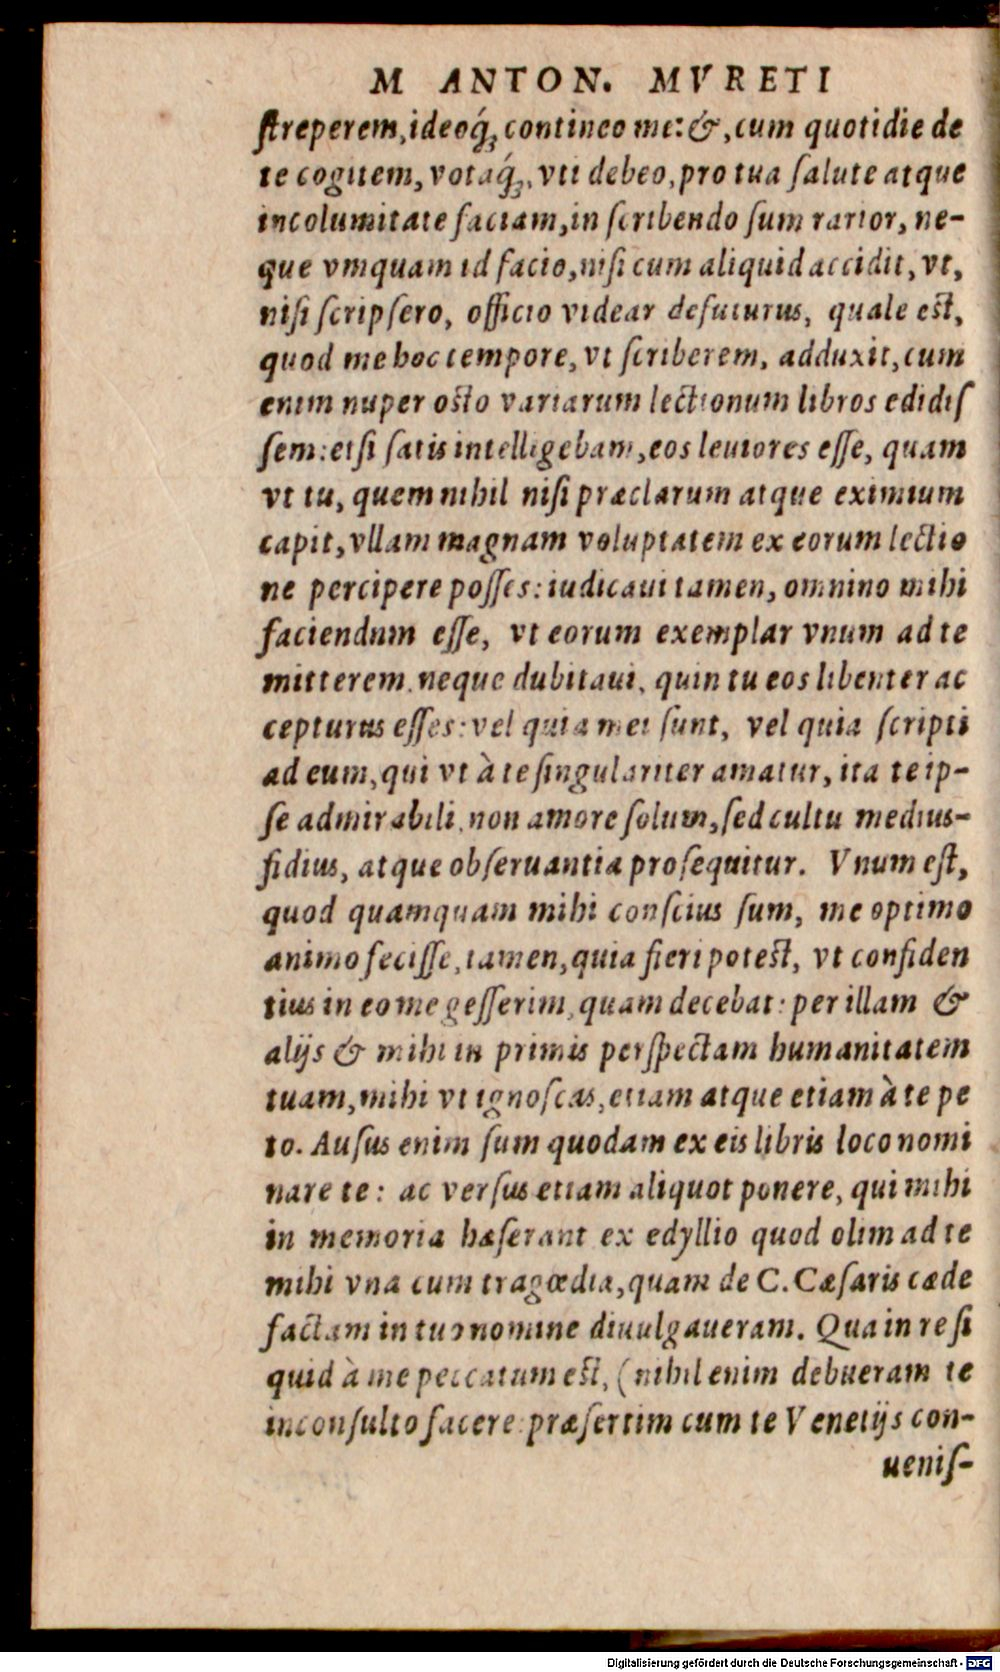 M ANTON. MVRETI
ſtreperem, ideoq́ꝫ contineo me: &, cum quotidie de
te cogitem, votaq́ꝫ, vti debeo, pro tua ſalute atque
incolumitate faciam, in ſcribendo ſum rarior, ne-
que vmquam id facio, niſi cum aliquid accidit, vt,
niſi ſcripſero, officio videar defuturus, quale eſt,
quod me hoc tempore, vt ſcriberem, adduxit, cum
enim nuper octo variarum lectionum libros edidiſ
ſem: etſi ſatis intelligebam, eos leuiores eſſe, quam
vt tu, quem nihil niſi præclarum atque eximium
capit, vllam magnam voluptatem ex eorum lectio
ne percipere poſſes: iudicaui tamen, omnino mihi
faciendum eſſe, vt eorum exemplar vnum ad te
mitterem. neque dubitaui, quin tu eos libenter ac
cepturus eſſes: vel quia mei ſunt, vel quia ſcripti
ad eum, qui vt à te ſingulariter amatur, ita te ip-
ſe admirabili, non amore ſolum, ſed cultu medius-
fidius, atque obſeruantia proſequitur. Vnum eſt,
quod quamquam mihi conſcius ſum, me optimo
animo feciſſe, tamen, quia fieri poteſt, vt confiden
tius in eo me geſſerim, quam decebat: per illam &
alijs & mihi in primis perſpectam humanitatem
tuam, mihi vt ignoſcas, etiam atque etiam à te pe
to. Auſus enim ſum quodam ex eis libris loco nomi
nare te: ac verſus etiam aliquot ponere, qui mihi
in memoria hæſerant ex edyllio quod olim ad te
mihi vna cum tragœdia, quam de C. Cæſaris cæde
factam in tuo nomine diuulgaueram. Qua in re ſi
quid à me peccatum eſt, (nihil enim debueram te
inconſulto facere: præſertim cum te Venetijs con-
ueniſ-
Digitalisierung gefördert durch die Deutsche Forschungsgemeinschaft - DFG